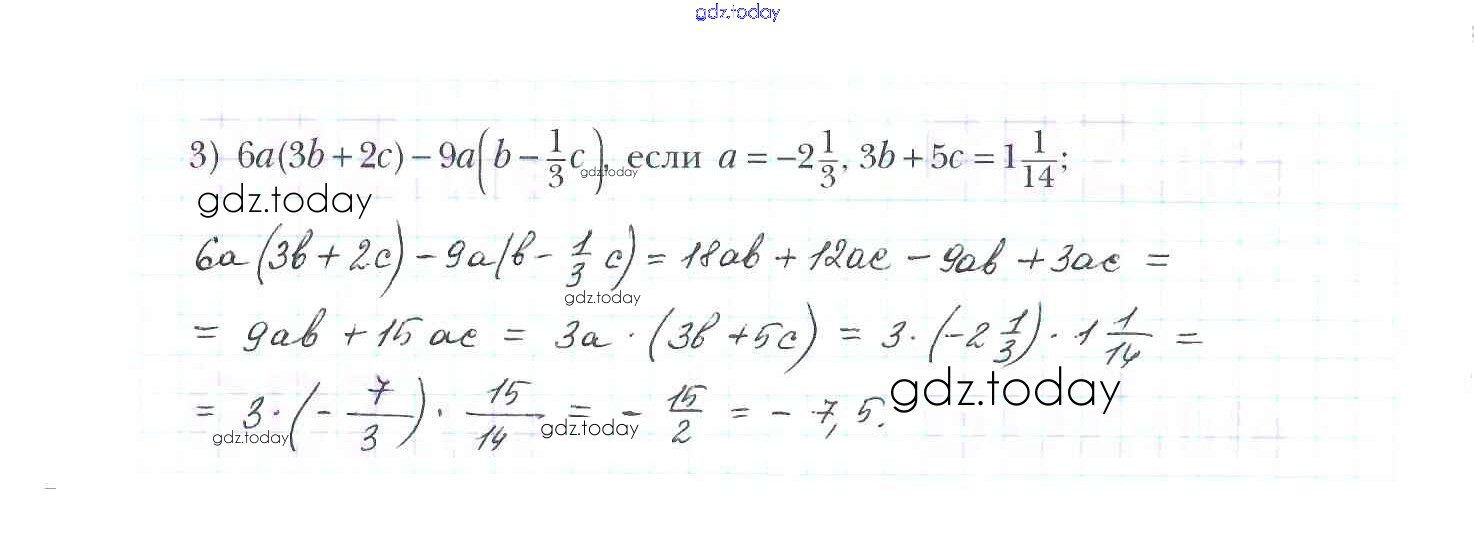 gdz.today
3) 6a(3b + 2c) − 9a(b − 1/3 c), если a = −2 1/3, 3b + 5c = 1 1/14;
gdz.today
gdz.today
6a(3b + 2c) − 9a(b − 1/3 c) = 18ab + 12ac − 9ab + 3ac =
gdz.today
= 9ab + 15ac = 3a · (3b + 5c) = 3 · (−2 1/3) · 1 1/14 =
gdz.today
= 3 · (− 7/3) · 15/14 = − 15/2 = − 7,5.
gdz.today
gdz.today